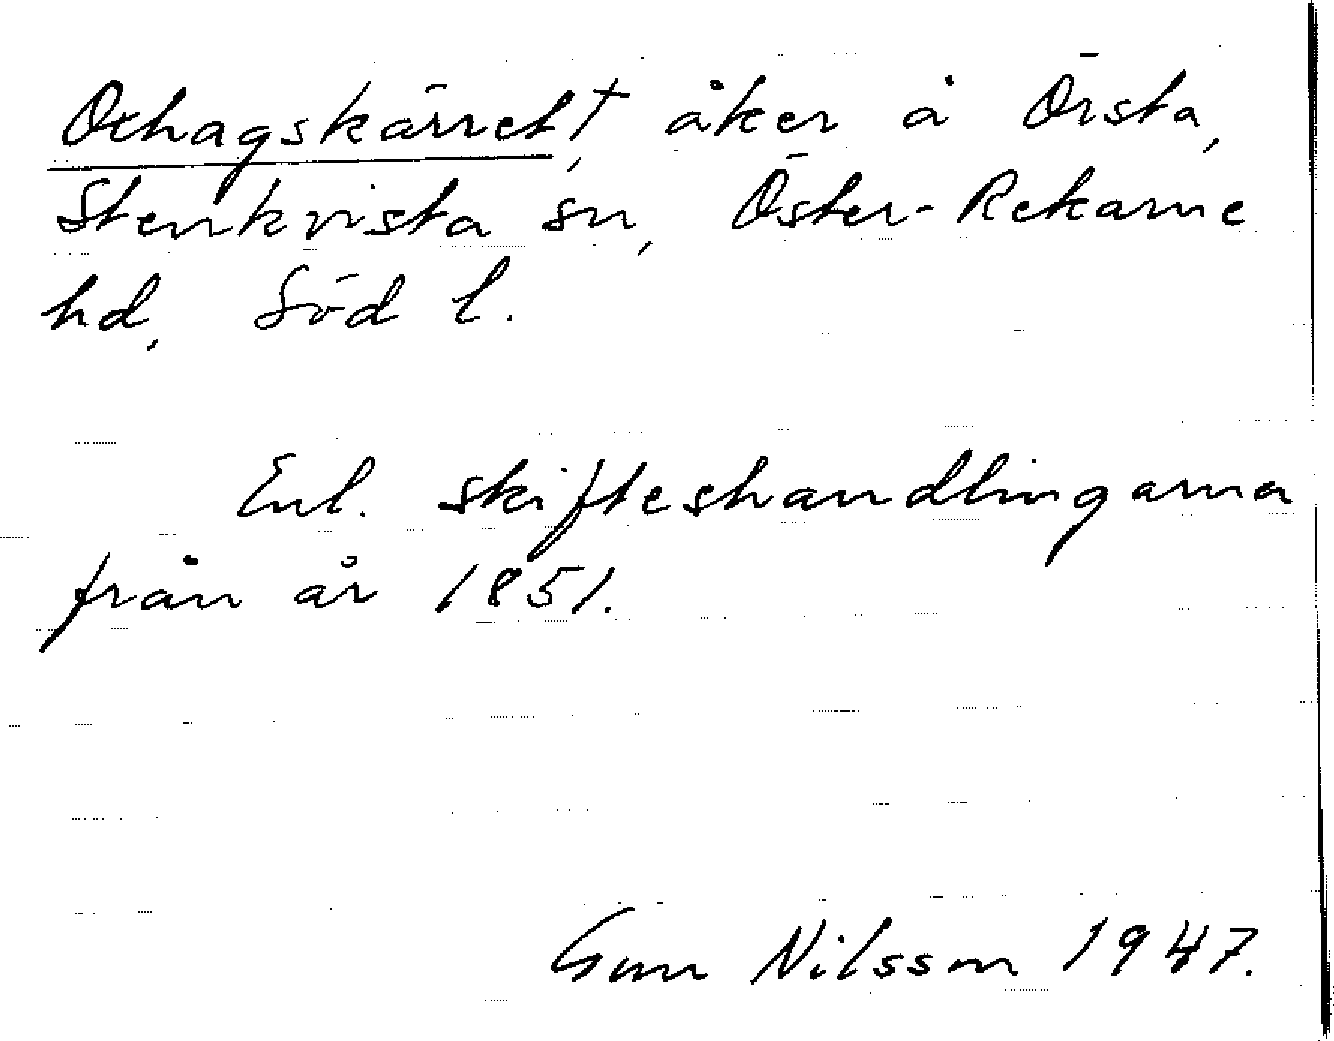 Oxhagskärret†, åker å Örsta,
Stenkvista sn, Öster-Rekarne
hd, Söd l.
Enl. skifteshandlingarna
från år 1851.
Gun Nilsson 1947.